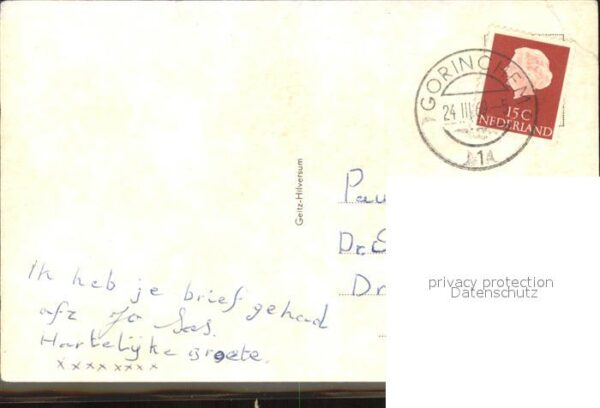 GORINCHEM
24 III 6
14
15 C
NEDERLAND
Geitz-Hilversum
Pau
Dr.
Dr
privacy protection
Datenschutz
Ik heb je brief gehad
afz Jo
Hartelijke Groete.
x x x x x x x x